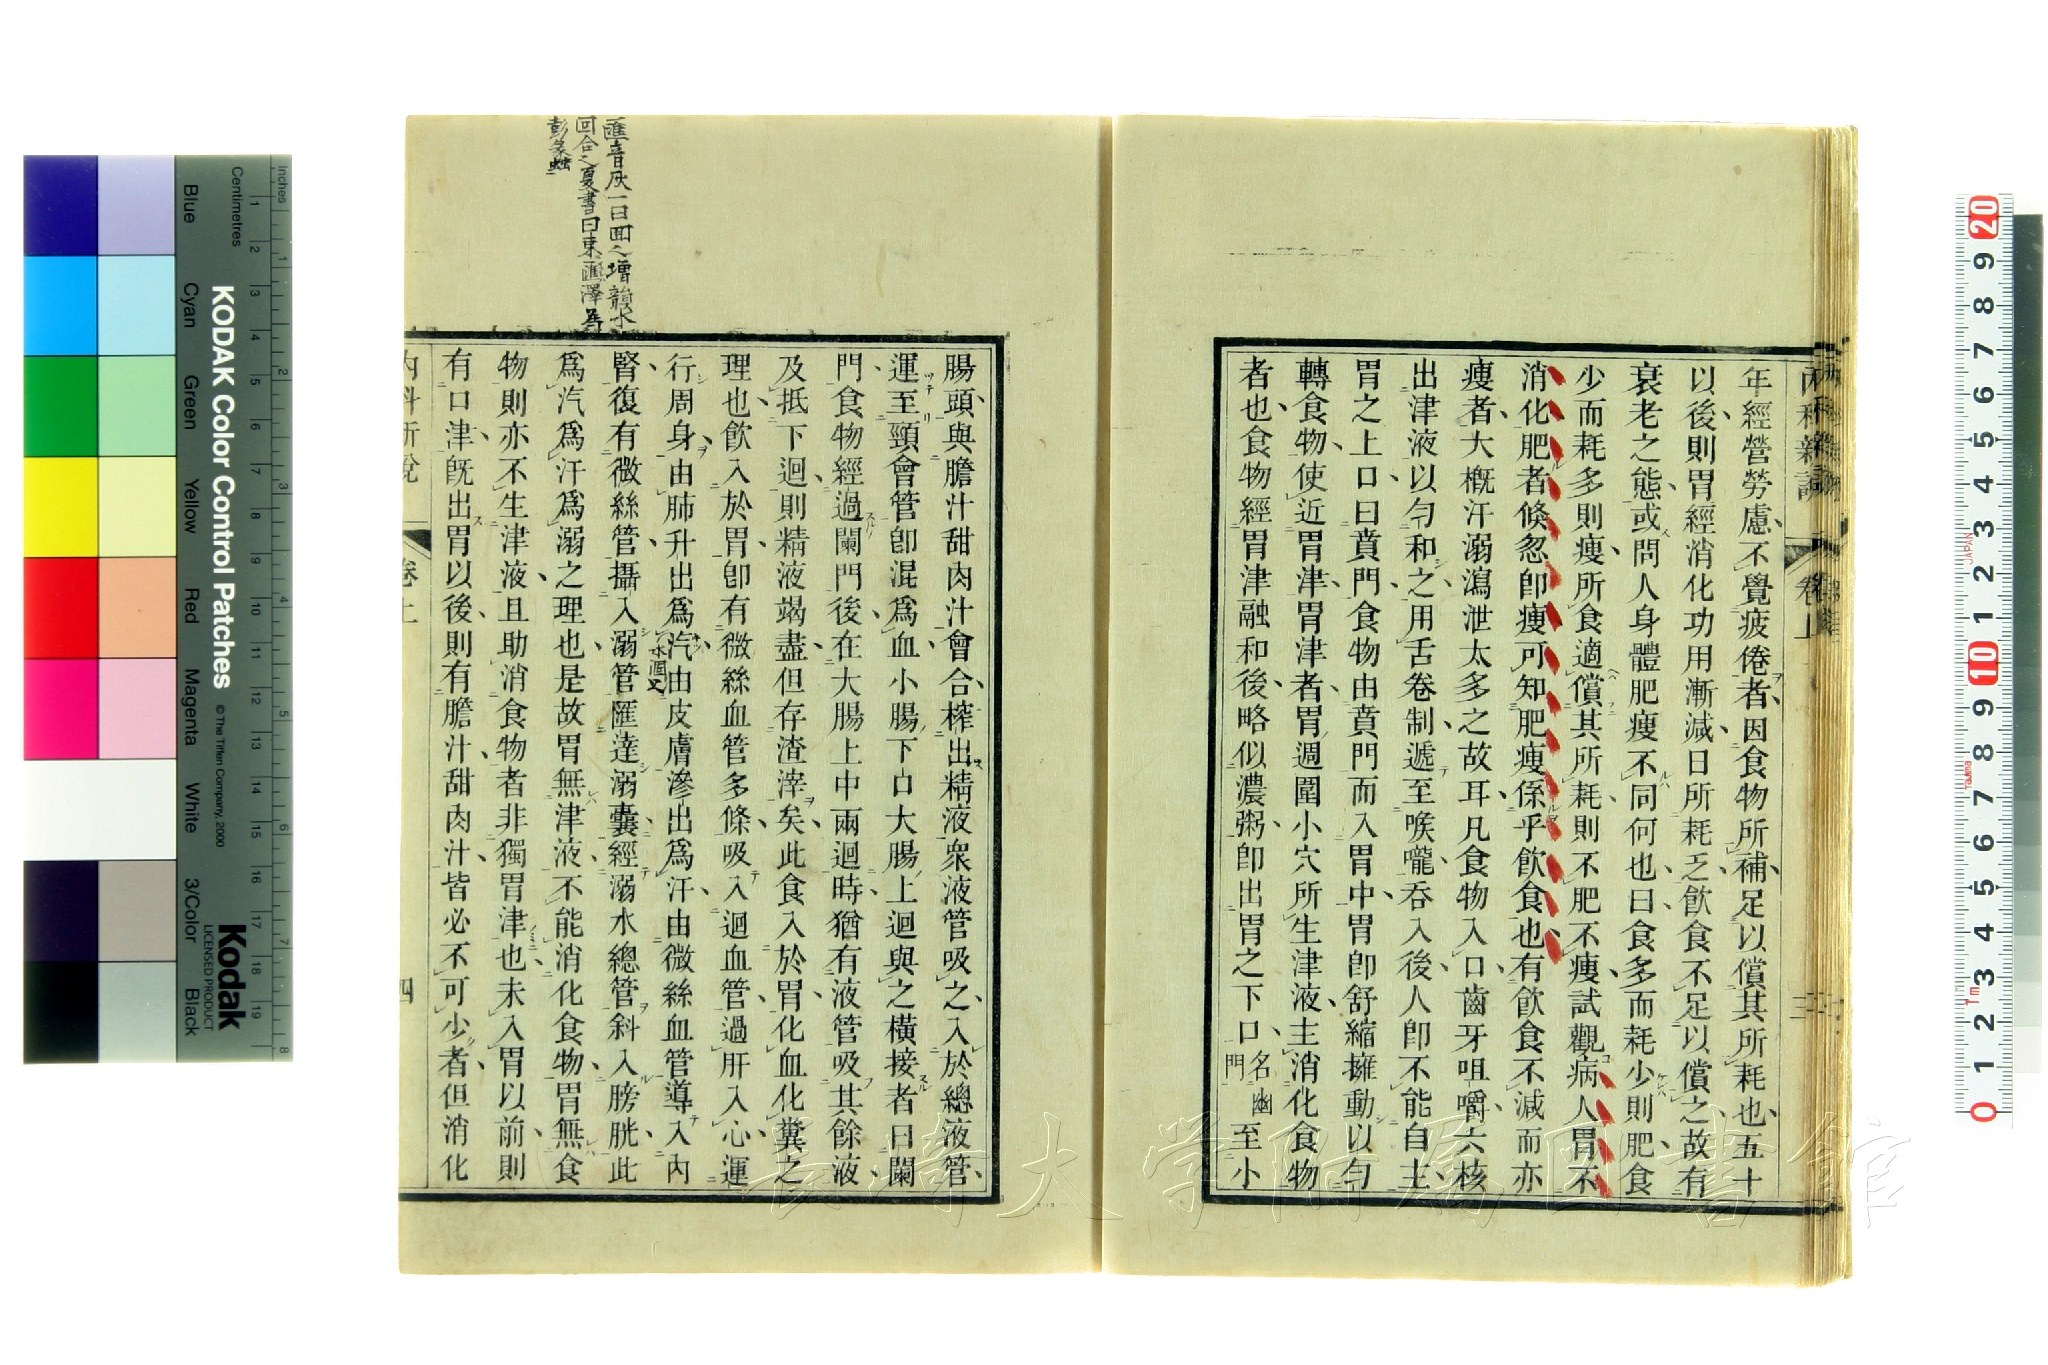 內科新說
卷上
年經營勞慮不覺疲倦者因食物所補足以償其所耗也五十
以後則胃經消化功用漸減日所耗乏飲食不足以償之故有
衰老之態或問人身體肥瘦不同何也曰食多而耗少則肥食
少而耗多則瘦所食適償其所耗則不肥不瘦試觀病人胃不
消化肥者倐忽卽瘦可知肥瘦係乎飲食也有飲食不減而亦
瘦者大槪汗溺瀉泄太多之故耳凡食物入口齒牙咀嚼六核
出津液以勻和之用舌卷制遞至喉嚨吞入後人卽不能自主
胃之上口曰賁門食物由賁門而入胃中胃卽舒縮擁動以勻
轉食物使近胃津胃津者胃週圍小穴所生津液主消化食物
者也食物經胃津融和後略似濃粥卽出胃之下口名幽門至小
腸頭與膽汁甜肉汁會合榨出精液衆液管吸之入於總液管
運至頸會管卽混爲血小腸下口大腸上迴與之橫接者曰闌
門食物經過闌門後在大腸上中兩迴時猶有液管吸其餘液
及抵下迴則精液竭盡但存渣滓矣此食入於胃化血化糞之
理也飲入於胃卽有微絲血管多條吸入迴血管過肝入心運
行周身由肺升出爲汽由皮膚滲出爲汗由微絲血管導入內
腎復有微絲管攝入溺管匯達溺囊經溺水總管斜入膀胱此
爲汽爲汗爲溺之理也是故胃無津液不能消化食物胃無食
物則亦不生津液且助消食物者非獨胃津也未入胃以前則
有口津旣出胃以後則有膽汁甜肉汁皆必不可少者但消化
內科新說
卷上
四
匯音灰一曰回之增韻水
回合之夏書曰東匯澤爲
彭蠡
長崎大学附属図書館
KODAK Color Control Patches
© The Tiffen Company, 2000
Kodak
LICENSED PRODUCT
Inches
Centimetres
Blue
Cyan
Green
Yellow
Red
Magenta
White
3/Color
Black
1 2 3 4 5 6 7 8
1 2 3 4 5 6 7 8 9 10 11 12 13 14 15 16 17 18 19
20 9 8 7 6 5 4 3 2 1 10 9 8 7 6 5 4 3 2 1 0
JAPAN